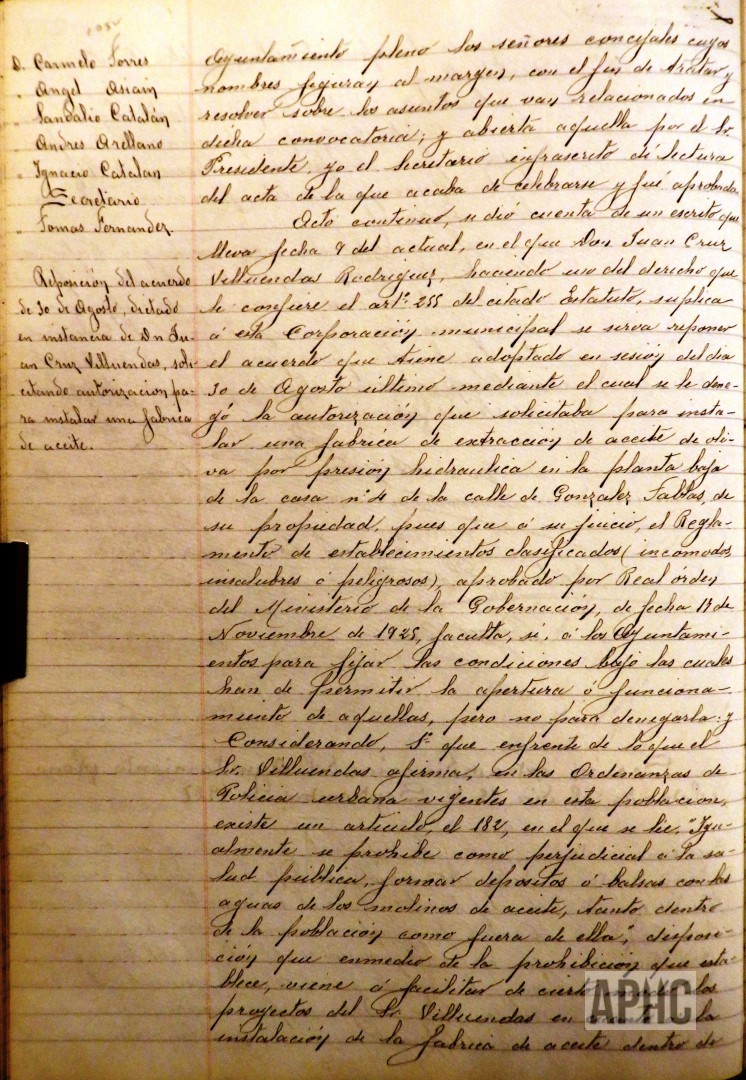 D. Carmelo Torres
" Angel Asiain
" Sandalio Catalán
" Andres Arellano
" Ignacio Catalan
Secretario
" Tomas Fernandez.
Reposición del acuerdo
de 30 de Agosto, dictado
en instancia de Dn Ju-
an Cruz Villuendas, soli-
citando autorizacion pa-
ra instalar una fabrica
de aceite.
Ayuntamiento pleno los señores concejales cuyos
nombres figuran al margen, con el fin de tratar y
resolver sobre los asuntos que van relacionados en
dicha convocatoria; y abierta aquella por el Sr.
Presidente yo el Secretario infrascrito dí lectura
del acta de la que acaba de celebrarse y fué aprobada.
Acto continuo, se dió cuenta de un escrito que
lleva fecha 9 del actual, en el que Don Juan Cruz
Villuendas Rodriguez, haciendo uso del derecho que
le confiere el artº. 255 del citado Estatuto, suplica
á esta Corporación municipal se sirva reponer
el acuerdo que tiene adoptado en sesion del dia
30 de Agosto último mediante el cual se le dene-
gó la autorización que solicitaba para insta-
lar una fabrica de extraccion de aceite de oli-
va por presion hidraulica en la planta baja
de la casa nº 4 de la calle de Gonzalez Tablas, de
su propiedad, pues que á su juicio, el Regla-
mento de establecimientos clasificados (incomodos,
insalubres ó peligrosos), aprobado por Real órden
del Ministerio de la Gobernación, de fecha 17 de
Noviembre de 1925, faculta, sí, á los Ayuntami-
entos para fijar las condiciones bajo las cuales
han de permitir la apertura ó funciona-
miento de aquellas, pero no para denegarla: y
Considerando, 1º que enfrente de lo que el
Sr. Villuendas afirma, en las Ordenanzas de
Policia urbana vigentes en esta poblacion,
existe un articulo, el 182, en el que se lee: "Igu-
almente se prohibe como perjudicial á la sa-
lud pública, formar depositos ó balsas con las
aguas de los molinos de aceite, tanto dentro
de la población como fuera de ella", disposi-
ción que enmedio de la prohibición que esta-
blece, viene á facilitar de cierto los
proyectos del Sr. Villuendas en la
instalación de la fabrica de aceite dentro de
APHC